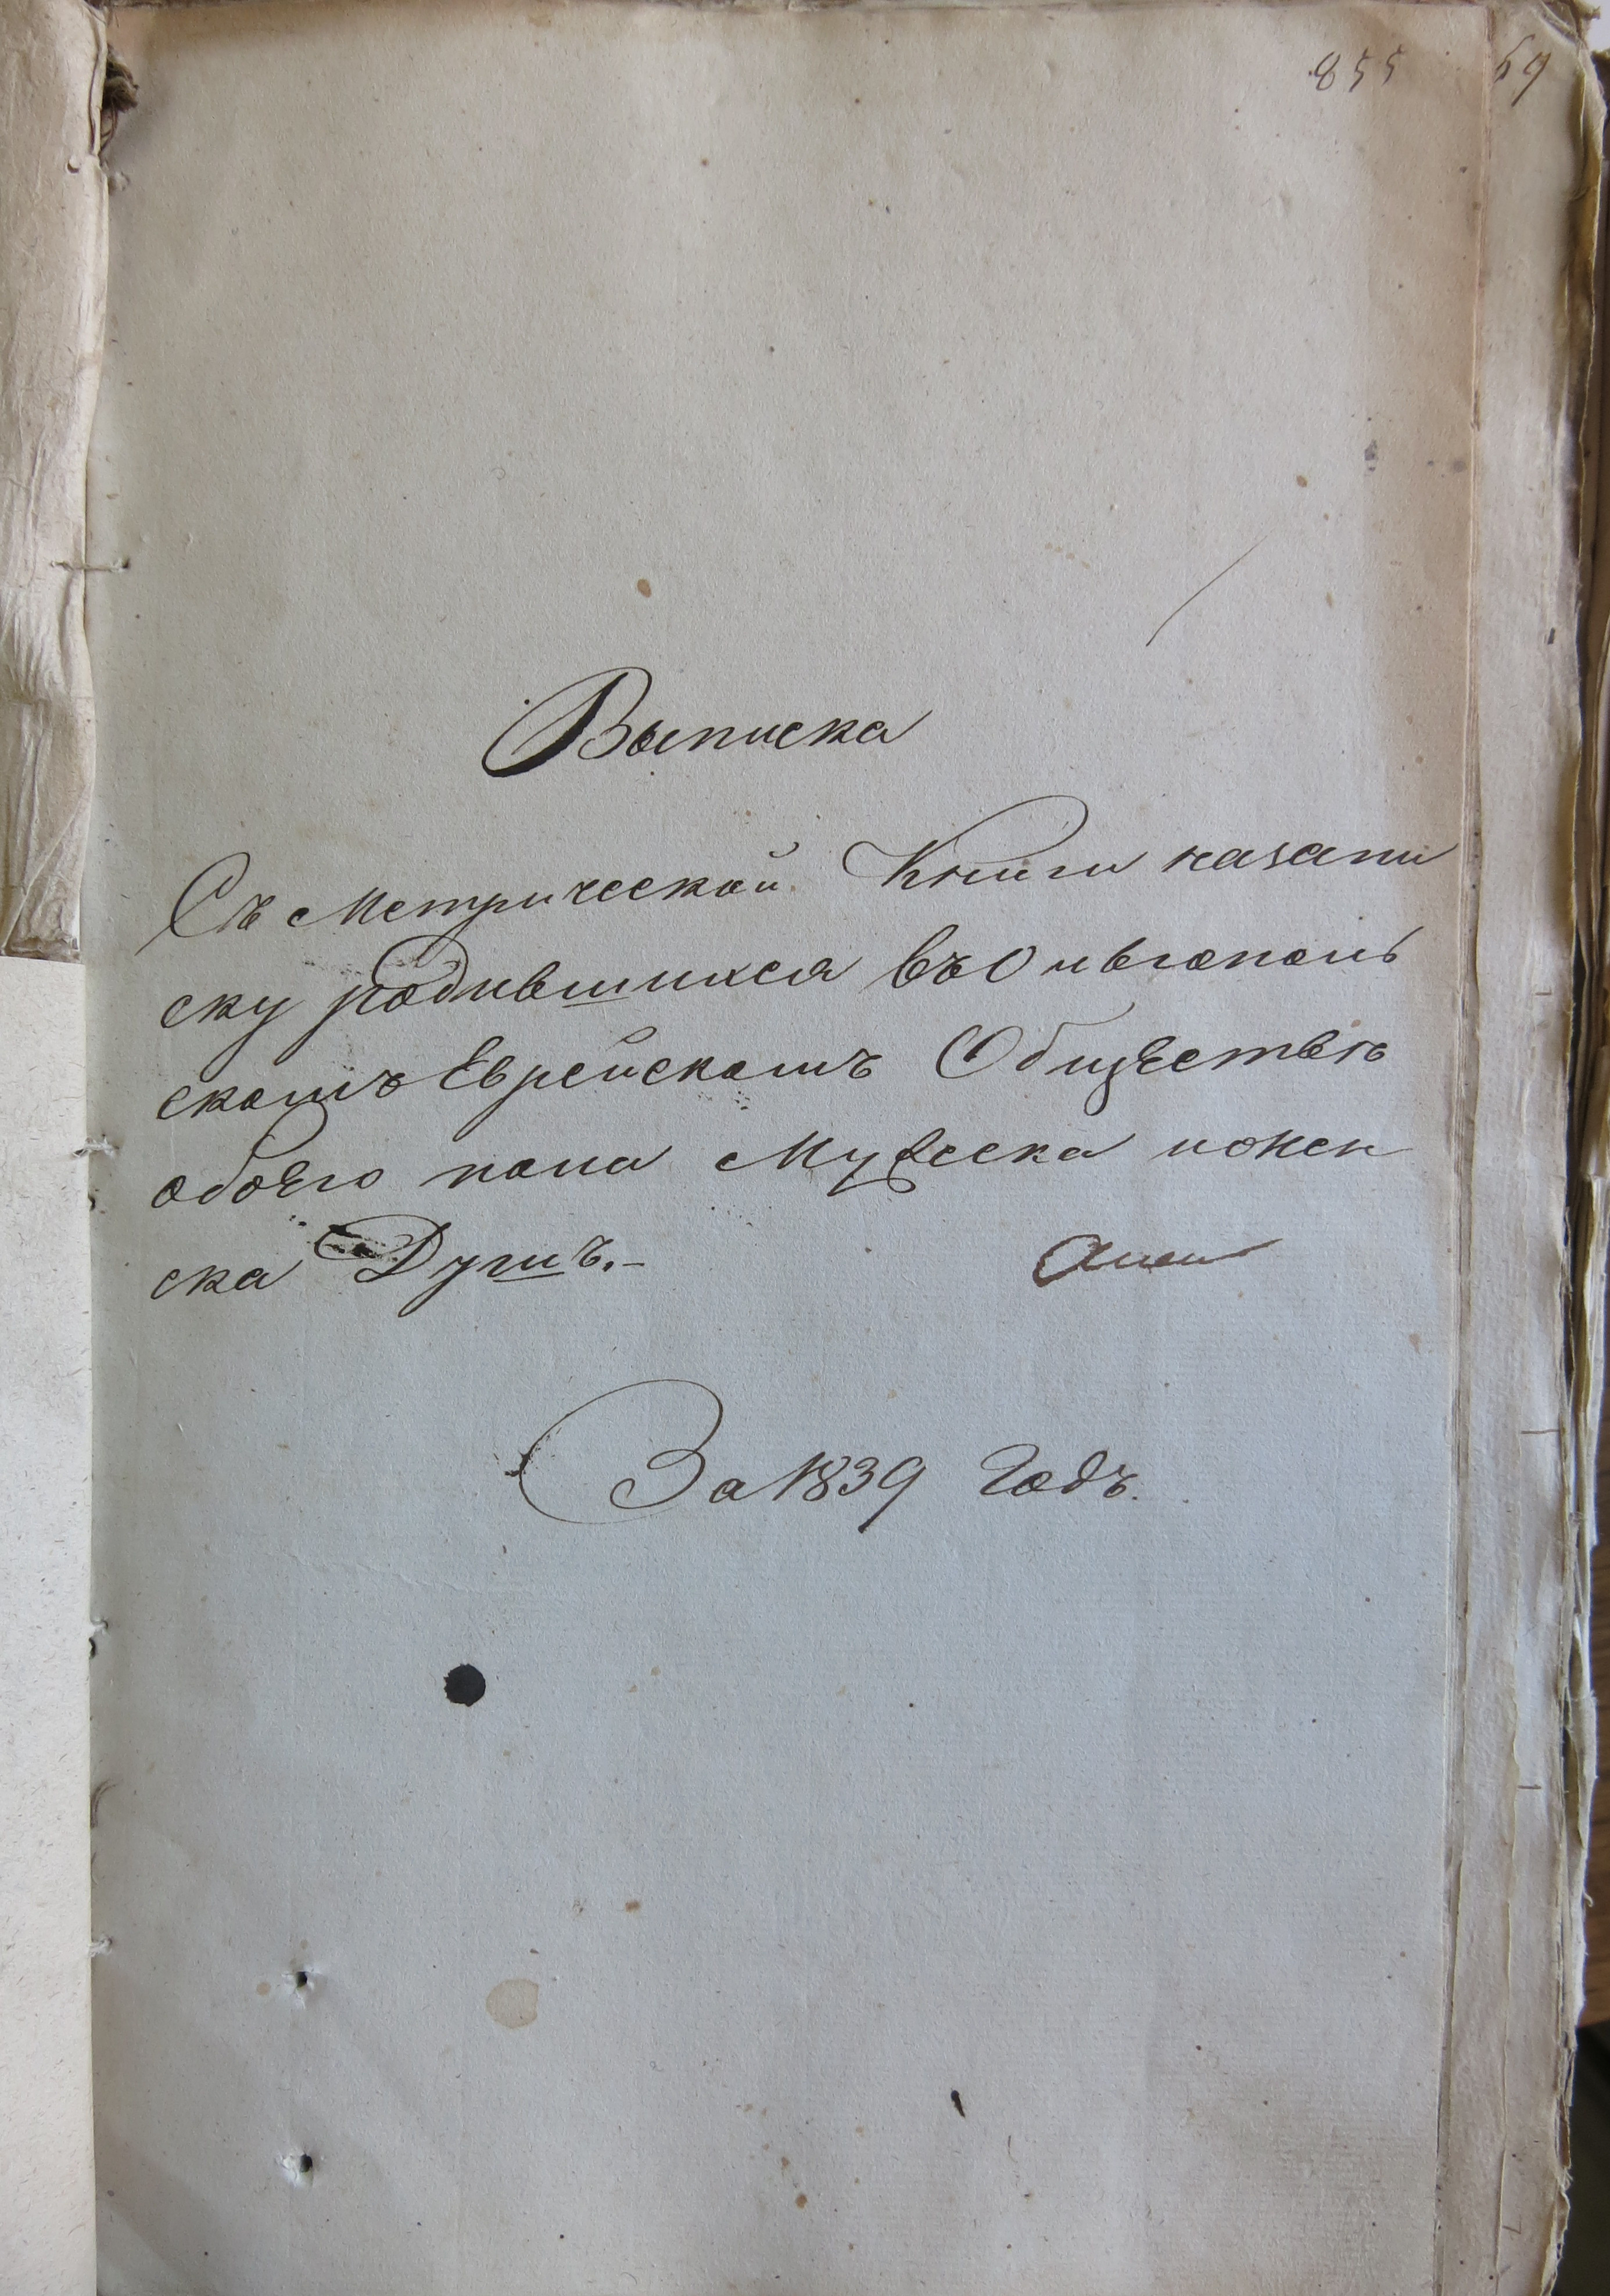 855
69
Выписка
Съ Метрической Книги назапи
ску родившихся въ Ольгополь
скомъ Еврейскомъ Обществѣ
обоего пола Мужеска ижен
ска Душъ.-
За 1839 Годъ.